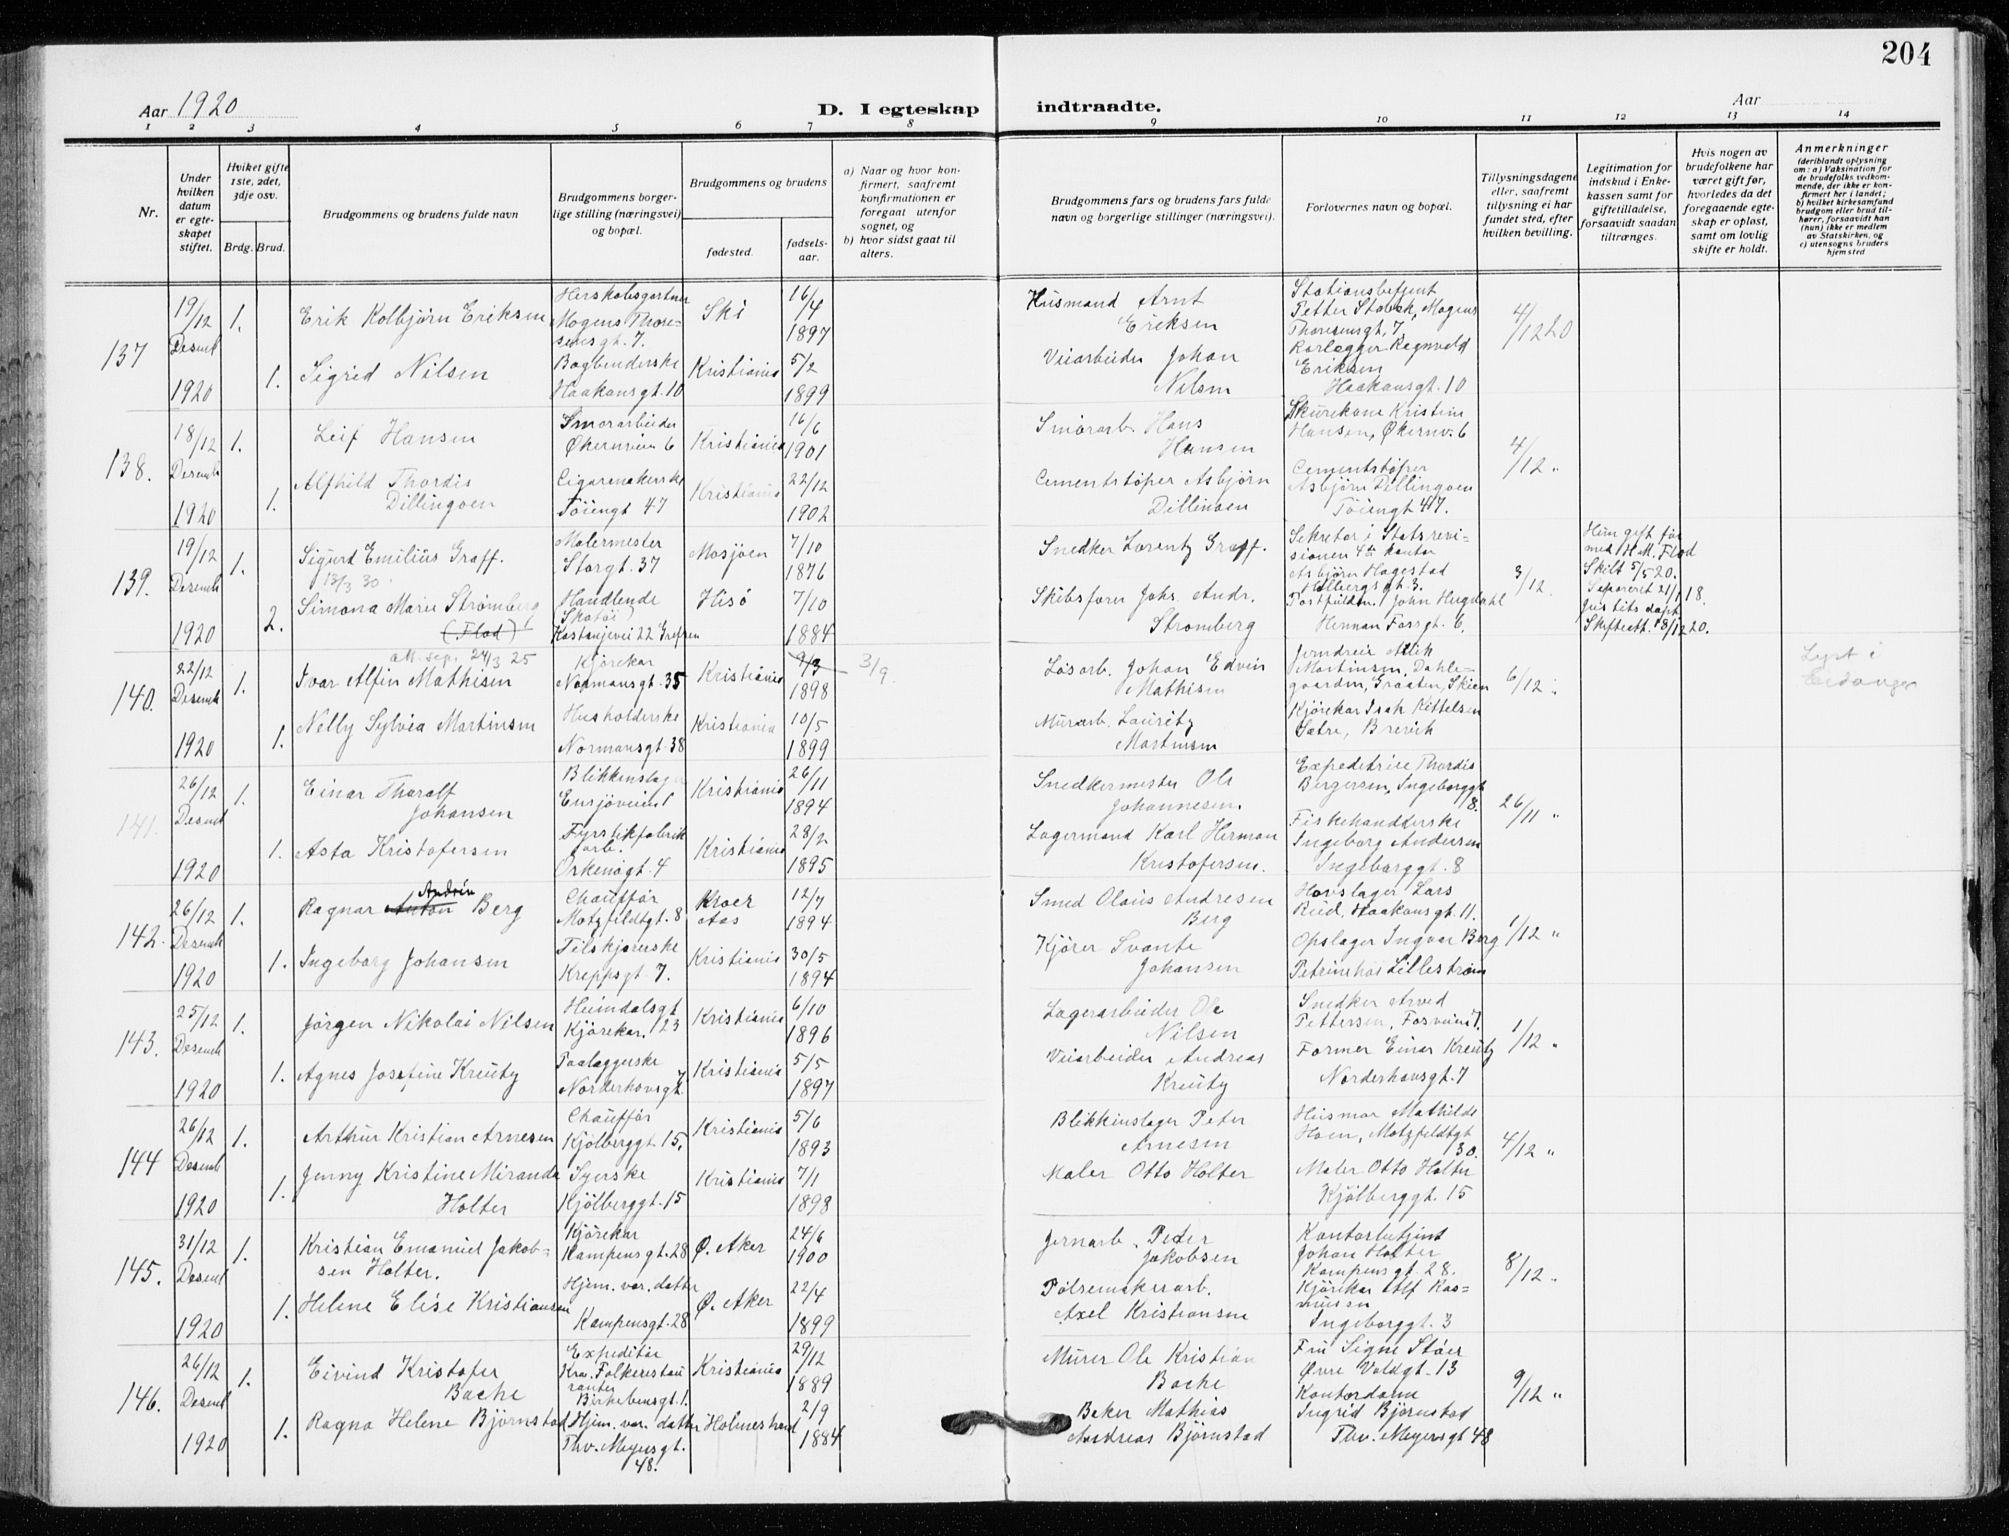 204
Aar 1920
D. I egteskap
indtraadte.
Aar
1 2 3 4 5 6 7 8 9 10 11 12 13 14
Nr.
Under hvilken datum er egteskapet stiftet.
Hviket gifte 1ste, 2det, 3dje osv.
Brdg. Brud.
Brudgommens og brudens fulde navn
Brudgommens borgerlige stilling (næringsvei) og bopæl.
Brudgommens og brudens
fødested.
fødselsaar.
a) Naar og hvor konfirmert, saafremt konfirmationen er foregaat utenfor sognet, og
b) hvor sidst gaat til alters.
Brudgommens fars og brudens fars fulde navn og borgerlige stillinger (næringsvei).
Forlovernes navn og bopæl.
Tillysningsdagene eller, saafremt tillysning ei har fundet sted, efter hvilken bevilling.
Legitimation for indskud i Enkekassen samt for giftetilladelse, forsaavidt saadan tiltrænges.
Hvis nogen av brudefolkene har været gift før, hvorledes da det foregaaende egteskap er opløst, samt om lovlig skifte er holdt.
Anmerkninger
(deriblandt oplysning om: a) Vaksination for de brudefolks vedkommende, der ikke er konfirmert her i landet; b) hvilket kirkesamfund brudgom eller brud tilhører, forsaavidt han (hun) ikke er medlem av Statskirken, og c) utensogns bruders hjemsted
137
19/12 Desemb 1920
1. Erik Kolbjørn Eriksen
Mogens Thoresensgt. 7.
Ski
16/4 1897
Husmand Arnt Eriksen
Stationsbetjent
Petter Stabek, Mogens
Thoresensgt. 7
4/12 20
1. Sigrid Nilsen
Bogbinderske
Haakonsgt. 10
Kristiania
5/2 1899
Veiarbeider Johan Nilsen
Rørlegger Ragnvald
Eriksen
Haakonsgt. 10
138.
18/12 Desemb 1920
1. Leif Hansen
Smørarbeider
Økernveien 6
Kristiania
16/6 1901
Smørarb. Hans Hansen
Skurekone Kristine
Hansen, Økernv. 6
4/12 "
1. Alfhild Thordis
Dillingøen
Cigarmakerske
Töiengt 47
Kristiania
22/12 1902
Cementstøper Asbjørn
Dillingøen
Cementstøper
Asbjørn Dillingøen
Töiengt 47.
139.
19/12 Desemb 1920
1. Sigurd Emilius Graff.
13/3 30
Malermester
Storgt. 37
Mosjøen
7/10 1876
Snedker Lorentz Graff.
Sekretær i Statsrevisionen 4de kontor
Asbjørn Hagestad
Holbergsgt. 3.
3/12.
Hun gift før
med H.M. Flod
Skilt 5/5 20.
Separeret 21/1 18.
Justits dept
Skifteatt. 8/12 20.
2. Simona Marie Strømberg
(Flod)
Handlende
Kastanjevei 22 Grefsen
Hisø
7/10 1884
Skibsfører Johs. Andr.
Strømberg
John Hugdahl
Herman Fossgt. 6.
140.
22/12 Desemb 1920
att. sep. 24/3 25
1. Ivar Alfin Mathisen
Kjørekar
Normansgt. 35
Kristiania
9/3 1898
3/9.
Løsarb. Johan Edvin
Mathisen
Jerndreier
Martinsen, Dahlegaarden, Graaten, Skien
6/12 "
Lyst i
Eidanger
1. Nelly Sylvia Martinsen
Husholderske
Normansgt. 38
Kristiania
10/5 1899
Murarb. Lauritz
Martinsen
Kjørekar Isak Kittelsen
Sætre, Brevik
141.
26/12 Desemb 1920
1. Einar Thoralf
Johansen
Blikkenslager
Ensjøveien 1
Kristiania
26/11 1894
Snedkermester Ole
Johannesen.
Expeditrice Thordis
Bergersen, Ingeborggt 8.
26/11 "
1. Asta Kristofersen
Fyrstikfabrik arb.
Orknøgt. 4
Kristiania
28/2 1895
Lagermand Karl Herman
Kristofersen.
Fiskehandlerske
Ingeborg Andersen
Ingeborggt. 8
142.
26/12 Desemb 1920
1. Ragnar Anton Andrin Berg
Chauffør
Motzfeldtgt. 8
Kroer
Aas
12/7 1894
Smed Olaus Andresen
Berg
Hovslager Lars
Rud, Haakonsgt. 11.
1/12 "
1. Ingeborg Johansen
Tilskjærerske
Kreppsgt. 7.
Kristiania
30/5 1894
Kjører Svante
Johansen
Opslager Ingvar Berg
Petrinehøi Lillestrøm
143.
25/12 Desemb 1920
1. Jørgen Nikolai Nilsen
Heimdalsgt
Kjørekar. 23
Kristiania
6/10 1896
Lagerarbeider Ole
Nilsen
Snedker Arved
Pettersen, Fossveien 1.
1/12 "
1. Agnes Josefine Kreutz
Paalæggerske
Norderhovsgt. 7
Kristiania
5/5 1897
Veiarbeider Andreas
Kreutz
Former Einar Kreutz
Norderhovsgt. 7
144
26/12 Desemb 1920
1. Arthur Kristian Arnesen
Chauffør
Kjølberggt. 15.
Kristiania
5/6 1893
Blikkenslager Peter
Arnesen
Husmor Mathilde
Hoen, Motzfeldtgt
30.
4/12 "
1. Jenny Kristine Miranda
Holter
Syerske
Kjølberggt. 15
Kristiania
7/1 1898
Maler Otto Holter
Maler Otto Holter
Kjølberggt. 15
145.
31/12 Desemb 1920
1. Kristian Emanuel Jakobsen Holter.
Kjørekar
Kampensgt. 28
Ø. Aker
24/6 1900
Jernarb. Peder
Jakobsen
Kontorbetjent
Johan Holter
Kampensgt. 28.
8/12 "
1. Helene Elise Kristiansen
Hjem. vær. datter
Kampensgt. 28
Ø. Aker
22/4 1899
Pølsemakerarb.
Axel Kristiansen
Kjørekar Alf Rasmussen
Ingeborggt. 3
146.
26/12 Desemb 1920
1. Eivind Kristofer
Bache
Expeditør
Kra. Folkerestauranter
Birkebensgt. 1.
Kristiania
29/12 1889
Murer Ole Kristian
Bache
Fru Signe Støer
Øvre Voldgt. 13
9/12 "
1. Ragna Helene Bjørnstad
Hjem. vær. datter
Thv. Meyersgt.
48.
Holmestrand
2/9 1884
Baker Mathias
Andreas Bjørnstad
Kontordame
Ingrid Bjørnstad
Thv. Meyersgt 48